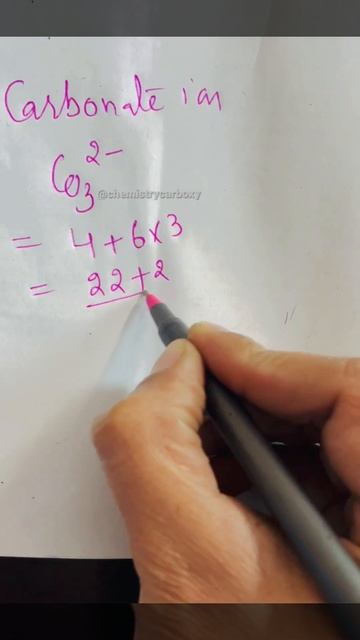 Carbonate ion
CO₃²⁻
@chemistrycarboxy
= 4+6×3
= 22+2